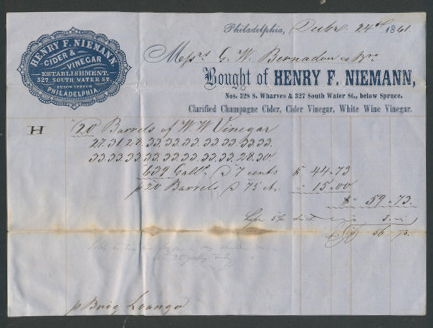 HENRY F. NIEMANN
CIDER &
VINEGAR
ESTABLISHMENT.
327 SOUTH WATER ST.
BELOW SPRUCE
PHILADELPHIA
Philadelphia, Decbr 24th 1861.
Messrs G. W. Bernadou & Bro.
Bought of HENRY F. NIEMANN,
Nos. 328 S. Wharves & 327 South Water St., below Spruce.
Clarified Champagne Cider, Cider Vinegar, White Wine Vinegar.
H 20 Barrels of W W Vinegar
33.33.33.33.33.33.33.
639 Galls. @ 7 cents $ 44.73
20 Barrels @ 75 ct. 15.00
$ 59.73
56.73
p Brig Loango